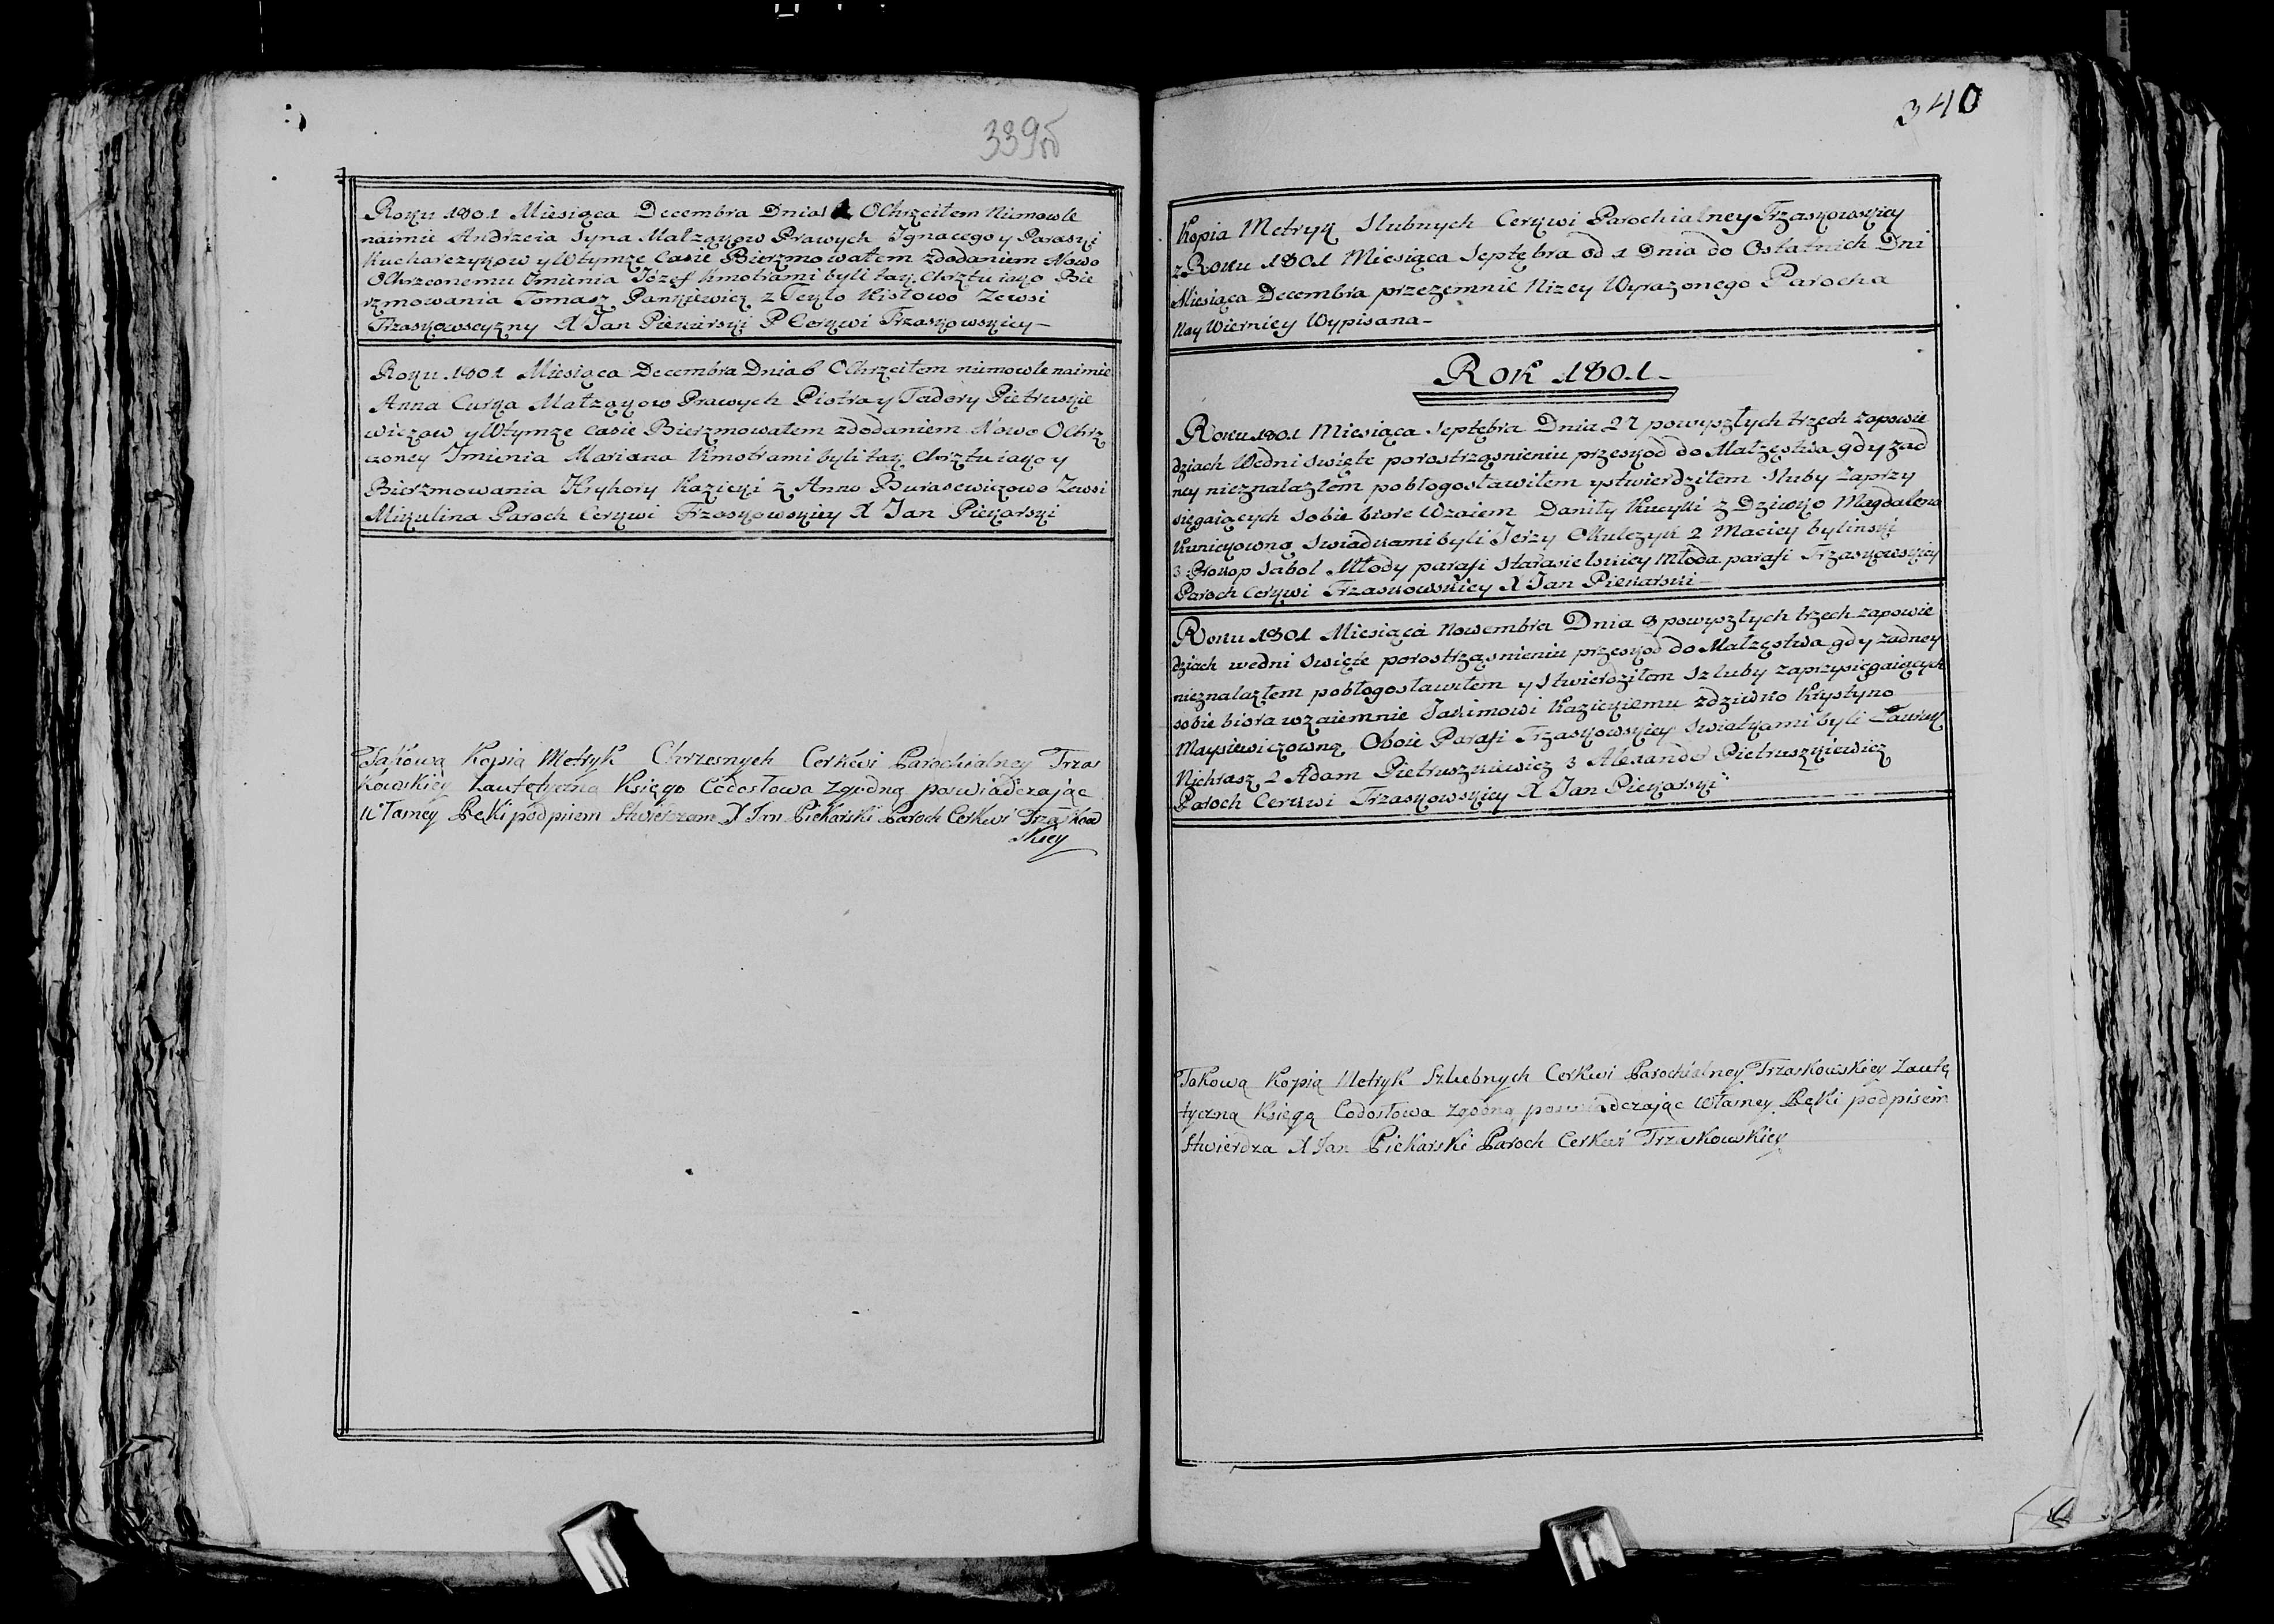 339об
Roku 1801 Miesiąca Decembra Dnia 1 Ochrzciłem Niemowle
naimie Andrzeia Syna Małząkow Prawych Ignacego y Paraski
Kucharczykow y Wtymze Casie Bierzmowałem zdodaniem Nowo
Ochrzconemu Imienia Józef Kmotrami byli tak Chrztu iako Bie
rzmowania Tomasz Pankiewicz z Teklo Kisłowo Zewsi
Trzaskowszyzny X Jan Piekarski P Cerkwi Trzaskowskiey
Roku 1801 Miesiąca Decembra Dnia 6 Ochrzciłem niemowle naimie
Anna Curka Małząkow Prawych Piotra y Tadory Pietruskie
wiczow y Wtymze Casie Bierzmowałem zdodaniem Nowo Ochrz
czoney Imienia Mariana Kmotrami byli tak Chrztu iako y
Bierzmowania Hryhory Kazicki z Anno Burasewiczowo Zewsi
Mikulina Paroch Cerkwi Trzaskowskiey X Jan Piekarski
Takową Kopią Metryk Chrzesnych Cerkwi Parochialney Trzas
kowskiey Zautętyczną Księgo Codosłowa Zgodną poswiadczając
Włamey Ręki podpisem Stwierdzam X Jan Piekarski Paroch Cerkwi Trzaskow
skiey
340
Kopia Metryk Slubnych Cerkwi Parochialney Trzaskowskiey
z Roku 1801 Miesiąca Septębra od 1 Dnia do Ostatnich Dni
Miesiąca Decembra przezemnie Nizey Wyrazonego Parocha
Nay Wierniey Wypisana
Rok 1801
Roku 1801 Miesiąca Septębra Dnia 27 powyszłych trzech zapowie
dziach Wedni Swięte porostrząsnieniu przeskod do Małzęstwa gdy zad
ney nieznalazłem pobłogosławiłem ystwierdziłem Sluby Zaprzy
sięgaiących Sobie biore Wzaiem Daniły Kucyki z Dziwko Magdaleno
Kunicyowną Swiadkami byli Jerzy Okulczyk 2 Maciey bylinski
3 Prokop Sabol Młody parafi Starasielskiey Młoda parafi Trzaskowskiey
Paroch Cerkwi Trzaskowskiey X Jan Piekarski
Roku 1801 Miesiąca Nowembra Dnia 8 powyszłych trzech zapowie
dziach wedni Swięte porostrząsnieniu przeskod do Małzęstwa gdy zadney
nieznalazłem pobłogosławiłem y Stwierdziłem Szluby zaprzysięgaiących
sobie biora wzaiemnie Jakimowi Kazickiemu zdziwko Krystyno
Maysiewiczowną Oboie Parafi Trzaskowskiey Swiatkami byli
Nichrasz 2 Adam Pietruszkiewicz 3 Alexander Pietruszkiewicz
Paroch Cerkwi Trzaskowskiey X Jan Piekarski
Takową Kopią Metryk Szlubnych Cerkwi Parochialney Trzaskowskiey Zautę
tyczną Księgą Codosłowa Zgodną poswiadczając Włamey Ręki podpisem
Stwierdza X Jan Piekarski Paroch Cerkwi Trzaskowskiey